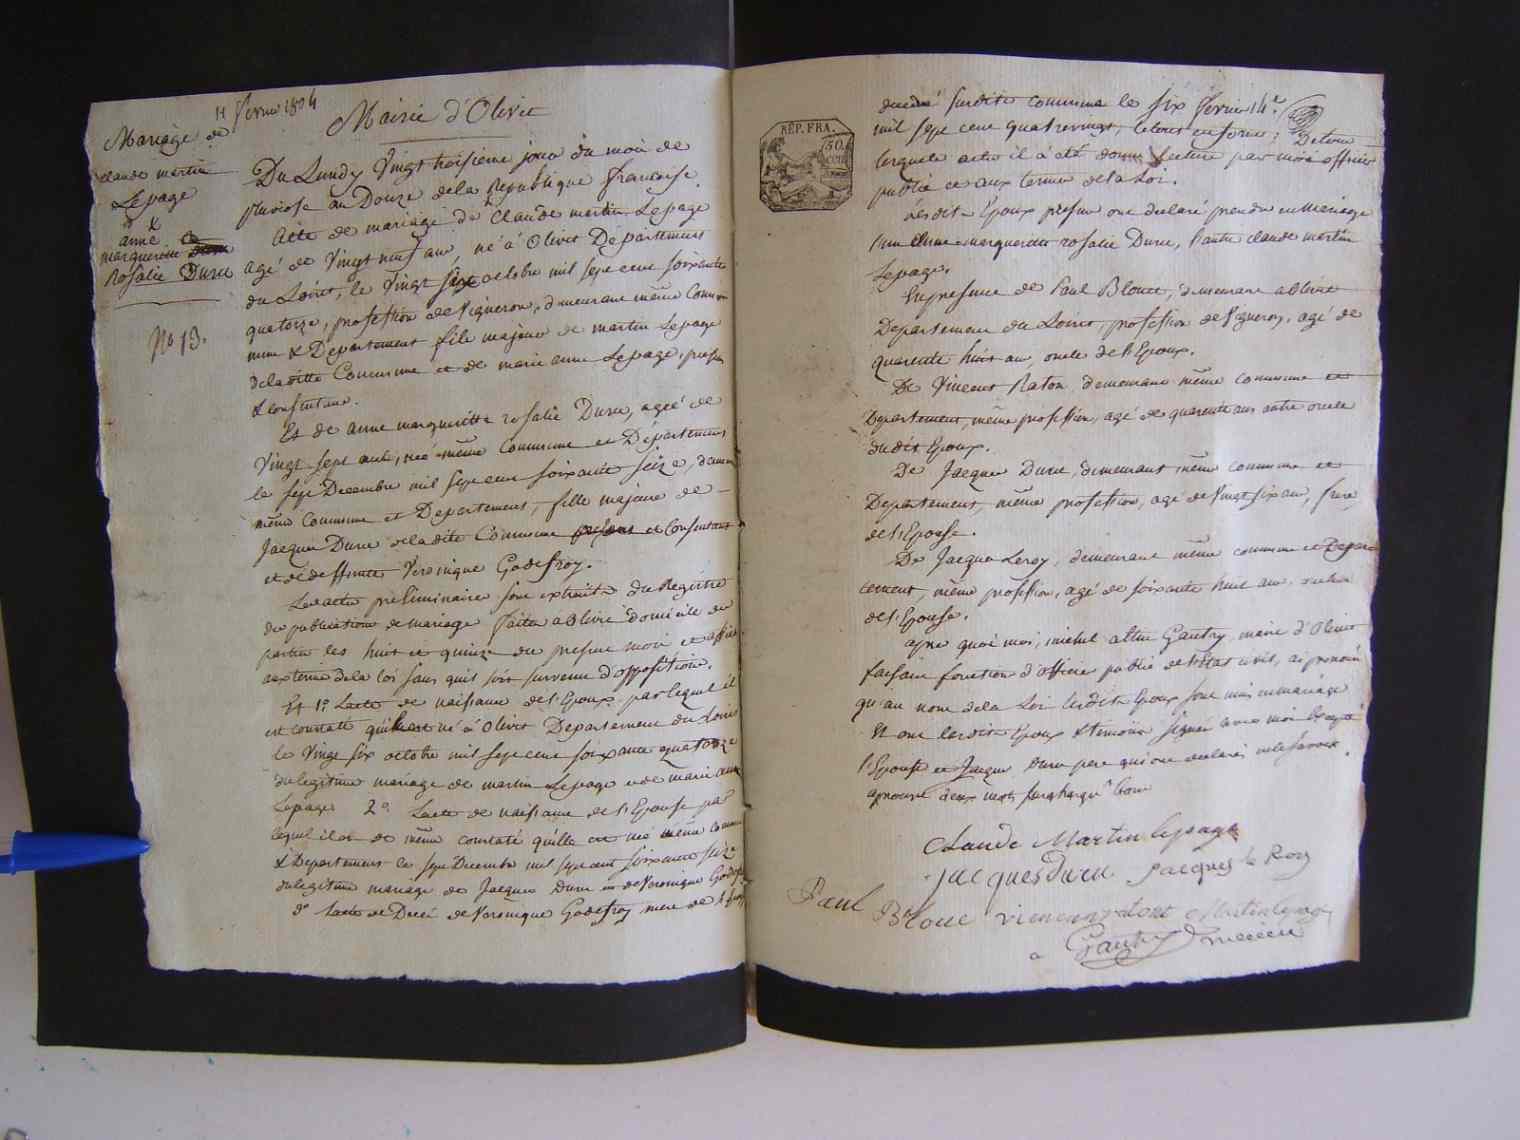 11 fevrier 1804
Mairie d'Olivet
Mariage de
claude martin
Lepage
&
anne
marguerite
Rosalie Duru
No 13.
Du Lundy Vingt troisieme jour du mois de
pluviose an Douze de la Republique francaise.
Acte de mariage de Claude martin Lepage
agé de Vingt neuf ans, né à Olivet Département
du Loiret, le Vingt six octobre mil sept cent soixante
quatorze, profession de Vigneron, demeurant même Commu
mune & Département fils majeur de martin Lepage
de la ditte Commune et de marie anne Lepage, presens
& consentans.
Et de anne margueritte rosalie Duru, agée de
Vingt sept ans, née même Commune et Département
le sept Decembre mil sept cent soixante seize, demeu
même Commune et Departement, fille majeure de
Jacques Duru de la dite Commune presens et Consentant
et de deffunte Veronique Godefroy.
Les actes preliminaires sont extraits du Registre
des publications de mariage faites a Olivet domicile des
parties les huit et quinze du present mois et affiché
aux termes de la loi sans quil soit survenu d'opposition.
Et 1º Lacte de naissance de l'Epoux par lequel il
est constaté quil est né à Olivet Departement du Loiret
le Vingt six octobre mil sept cent soixante quatorze
du legitime mariage de martin Lepage et de marie anne
Lepage 2º Lacte de naissance de l'Epouse par
lequel il est de même constaté qu'elle est née même commune
& Departement le sept Decembre mil sept cent soixante seize
du legitime mariage de Jacques Duru et de Veronique Godefroy
3º Lacte de Decé de Veronique Godefroy mere de l'Epouse
RÉP. FRA.
50
CENT
decedé susdite commune le six fevrier
mil sept cent quatrevingt, le tout en forme; De tous
lesquels actes il à été donné lecture par moi officier
public et aux termes de la Loi.
Lesdits Epoux presens ont declaré prendre en Mariage
l'un anne margueritte rosalie Duru, l'autre claude martin
Lepage.
En presence de Paul Blouet, demeurant a Olivet
Departement du Loiret, profession de Vigneron, agé de
quarente huit ans oncle de l'Epoux.
De Vincent Raton, demeurant même commune et
Departement, même profession, agé de quarente ans autre oncle
dudit Epoux.
De Jacques Duru, demeurant même commune et
Departement, même profession, agé de Vingt six ans, frere
de l'Epouse.
De Jacques Leroy, demeurant même commune et Depar
tement, même profession, agé de soixante huit ans, oncle
de l'Epouse.
apres quoi moi, michel Gautry, maire d'Olivet
faisant fonction d'officier public de l'Etat civil, ai prononcé
qu'au nom de la Loi lesdits Epoux sont unis en mariage
Et ont lesdits Epoux & temoins signés avec moi Excepté
l'Epouse et Jacques Duru pere qui ont declarés ne le savoir.
aprouvé deux mots
Claude Martin lepage
jacques Duru Jacques le Roy
Paul Bloue Martin lepage
Gautry